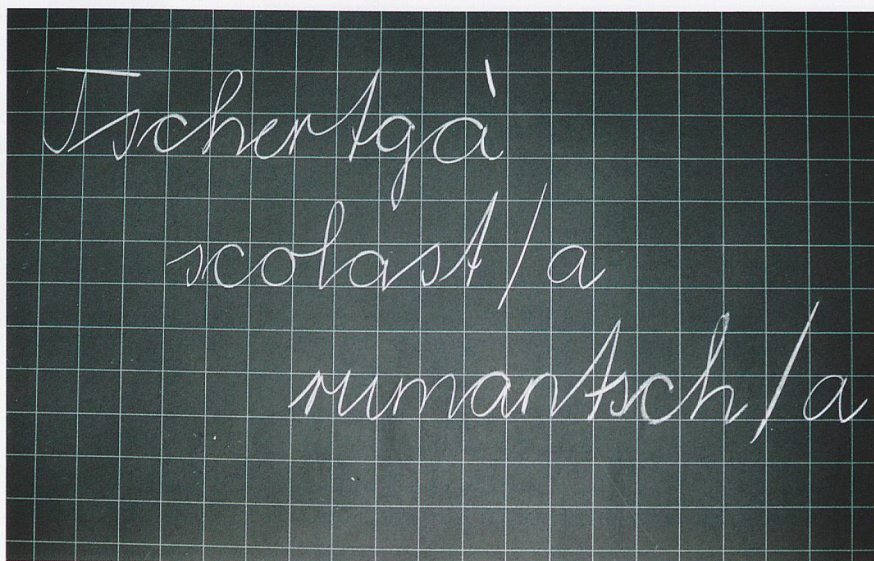 Tschertgà
scolast/a
rumantsch/a